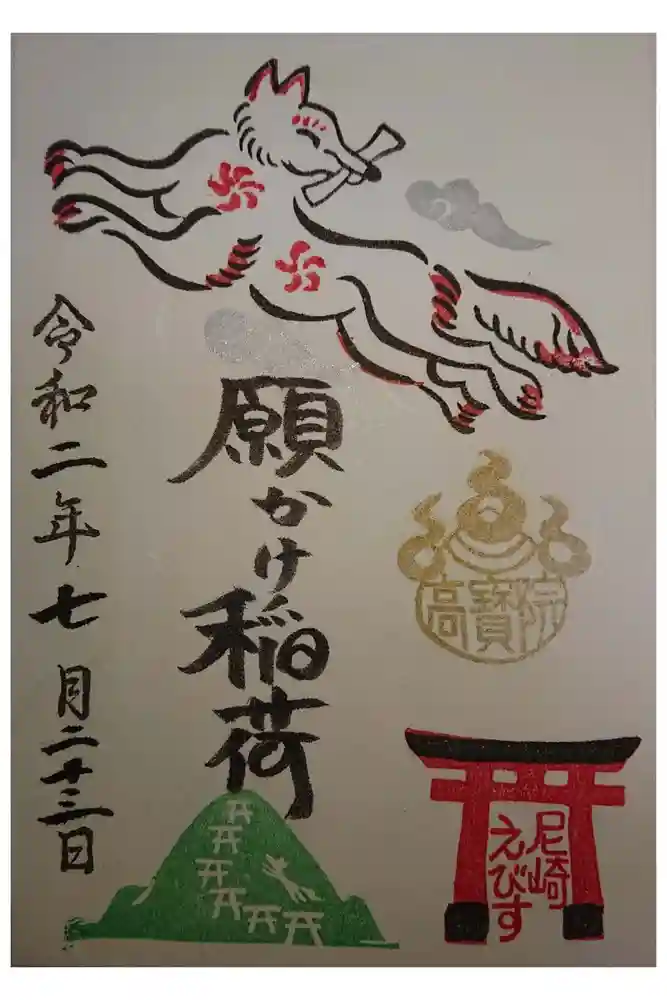 願かけ稲荷
令和二年七月二十三日
高寳院
尼崎
えびす